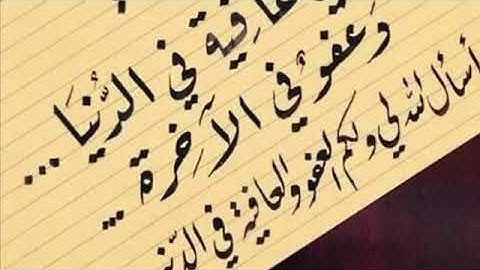 عافية في الدُّنيَا ...
وَعفوٌ في الآخِرة ...
أسأل الله لي ولكم العفو والعافية في الدّنيا